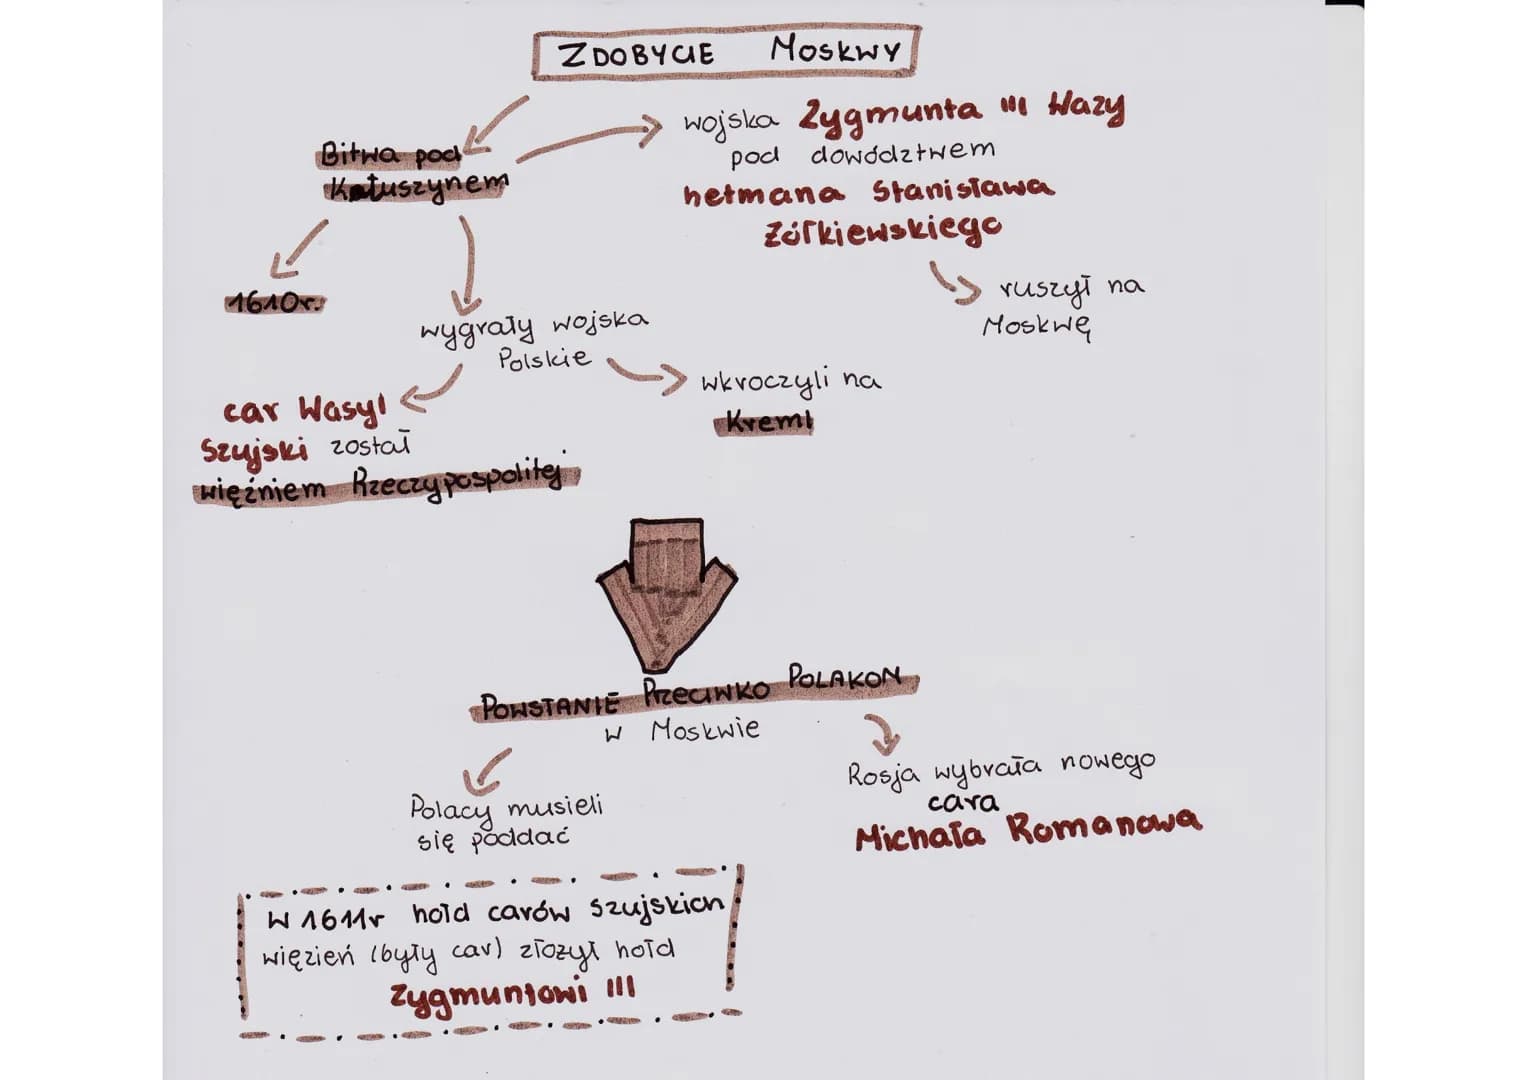 ZDOBYCIE MOSKWY
Bitwa pod
Kałuszynem
wojska Zygmunta III Wazy
pod dowództwem
hetmana Stanisława
Żółkiewskiego
ruszył na
Moskwę
1610r.
wygrały wojska
Polskie
wkroczyli na
Kreml
car Wasyl
Szujski został
więźniem Rzeczypospolitej
POWSTANIE PRZECIWKO POLAKON
w Moskwie
Polacy musieli
się poddać
Rosja wybrała nowego
cara
Michała Romanowa
W 1611r hołd carów Szujskich
więzień (były car) złożył hołd
Zygmuntowi III